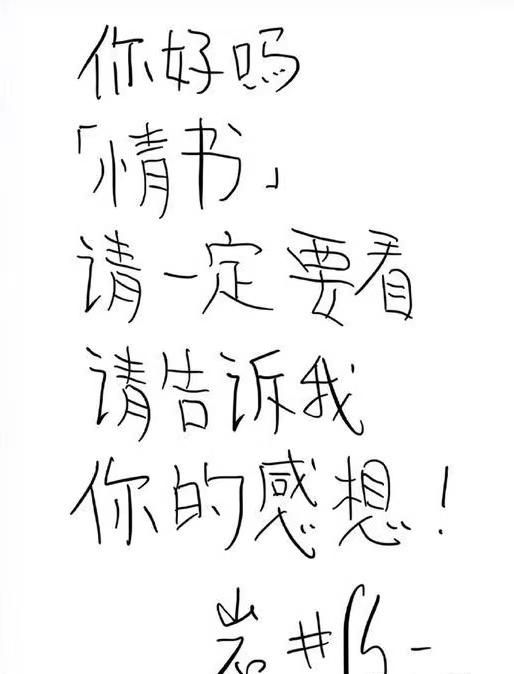 你好吗
「情书」
请一定要看
请告诉我
你的感想!
岩井